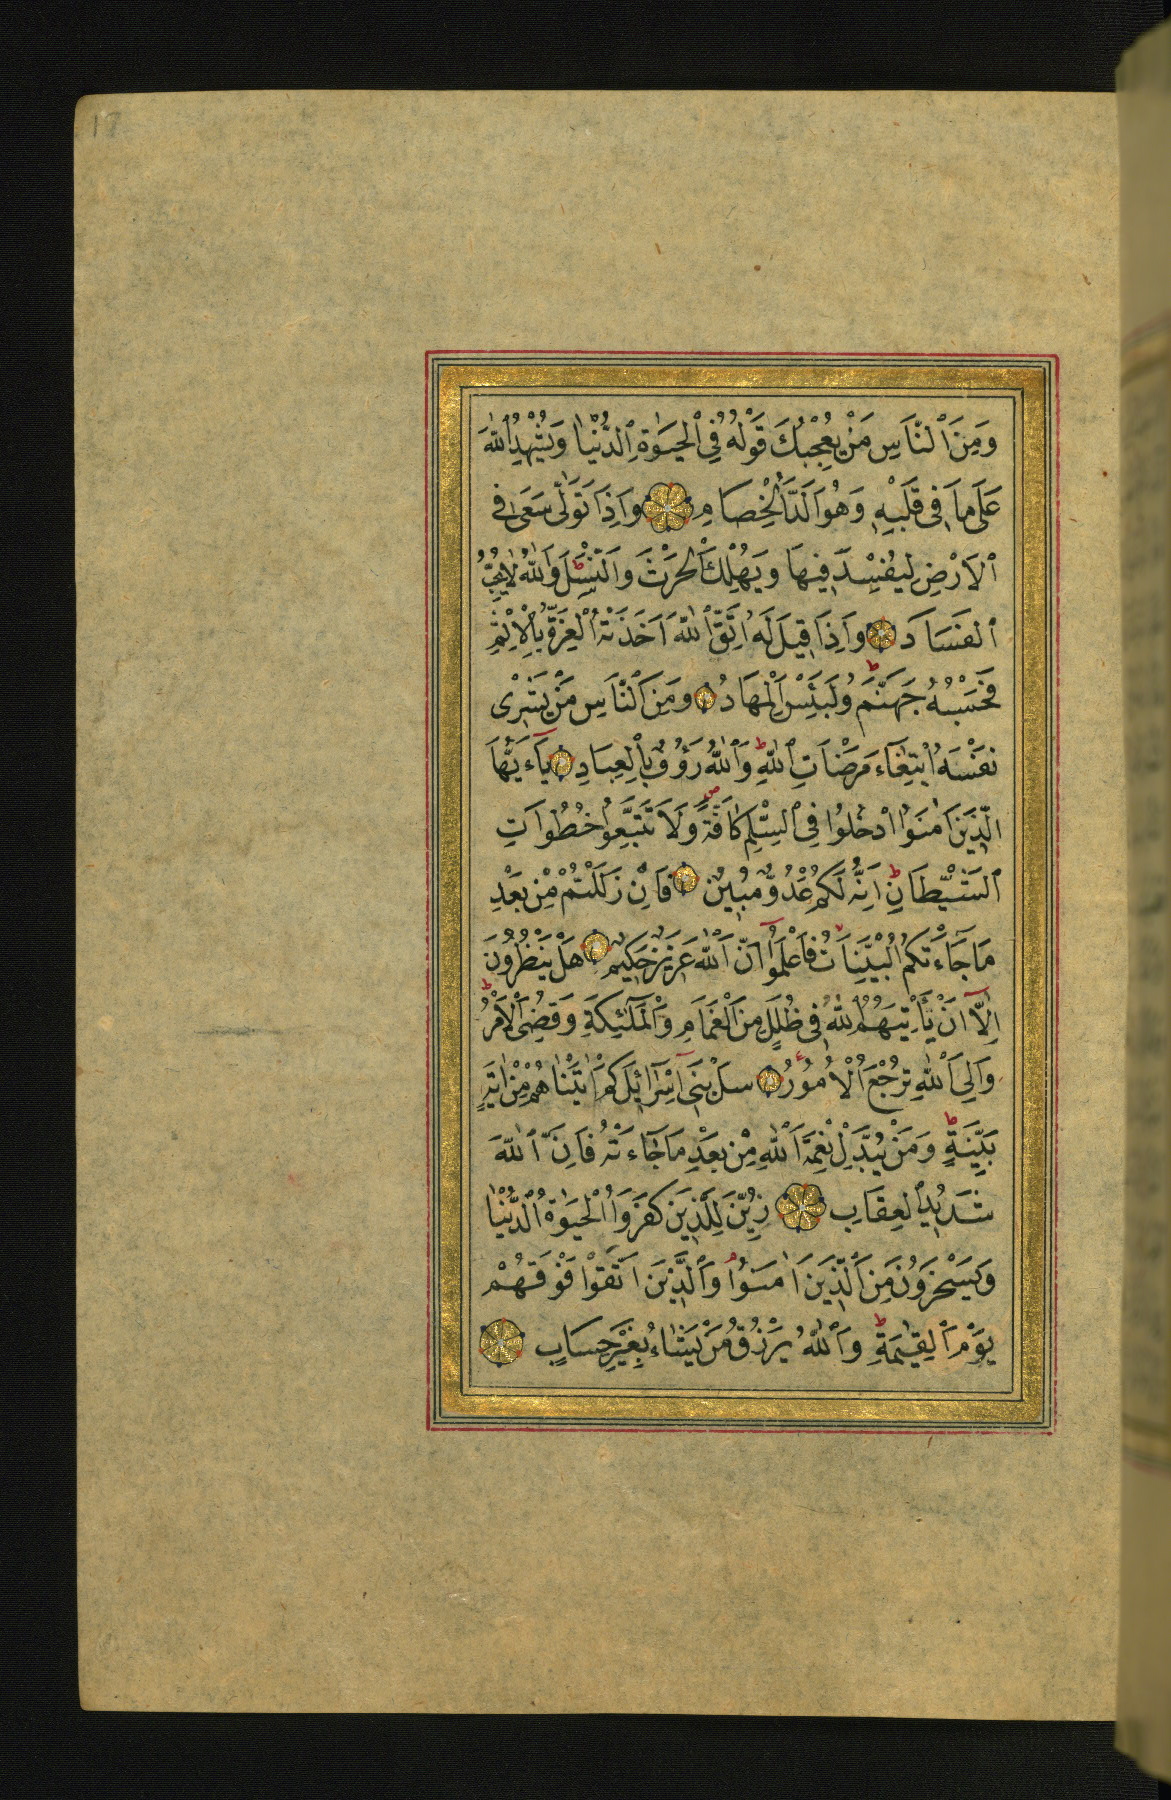 وَمِنَ ٱلنَّاسِ مَنْ يُعْجِبُكَ قَوْلُهُ فِي ٱلْحَيٰوةِ ٱلدُّنْيَا وَيُشْهِدُ ٱللّٰهَ
عَلَى مَا فِى قَلْبِهِ وَهُوَ اَلَدُّ ٱلْخِصَامِ وَاِذَا تَوَلّٰى سَعَى فِى
ٱلْاَرْضِ لِيُفْسِدَ فِيهَا وَيُهْلِكَ ٱلْحَرْثَ وَالنَّسْلَ وَٱللّٰهُ لَا يُحِبُّ
ٱلفَسَادَ وَاِذَا قِيلَ لَهُ اتَّقِ ٱللّٰهَ اَخَذَتْهُ ٱلْعِزَّةُ بِٱلْاِثْمِ
فَحَسْبُهُ جَهَنَّمُ وَلَبِئْسَ ٱلْمِهَادُ وَمِنَ ٱلنَّاسِ مَنْ يَشْرِى
نَفْسَهُ ابْتِغَآءَ مَرْضَاتِ ٱللّٰهِ وَٱللّٰهُ رَؤُفٌ بِٱلْعِبَادِ يَآءَيُّهَا
الَّذِينَ اٰمَنُوا ادْخُلُوا فِى ٱلسِّلْمِ كَافَّةً وَلَا تَتَّبِعُوا خُطُوَاتِ
ٱلشَّيْطَانِ اِنَّهُ لَكُمْ عَدُوٌّ مُبِينٌ فَاِنْ زَلَلْتُمْ مِنْ بَعْدِ
مَا جَآءَتْكُمُ ٱلْبَيِّنَاتُ فَاعْلَمُوٓا اَنَّ ٱللّٰهَ عَزِيزٌ حَكِيمٌ هَلْ يَنْظُرُونَ
اِلَّآ اَنْ يَأْتِيَهُمُ ٱللّٰهُ فِى ظُلَلٍ مِنَ ٱلْغَمَامِ وَٱلْمَلٰٓئِكَةُ وَقُضِىَ ٱلْاَمْرُ
وَاِلَى ٱللّٰهِ تُرْجَعُ ٱلْاُمُورُ سَلْ بَنِىٓ اِسْرَآئِلَ كَمْ اٰتَيْنَاهُمْ مِنْ اٰيَةٍ
بَيِّنَةٍ وَمَنْ يُبَدِّلْ نِعْمَةَ ٱللّٰهِ مِنْ بَعْدِ مَا جَآءَتْهُ فَاِنَّ ٱللّٰهَ
شَدِيدُ ٱلعِقَابِ زُيِّنَ لِلَّذِينَ كَفَرُوا ٱلْحَيٰوةُ ٱلدُّنْيَا
وَيَسْخَرُونَ مِنَ ٱلَّذِينَ اٰمَنُوا وَٱلَّذِينَ اتَّقَوْا فَوْقَهُمْ
يَوْمَ ٱلقِيٰمَةِ وَٱللّٰهُ يَرْزُقُ مَنْ يَشَآءُ بِغَيْرِ حِسَابٍ